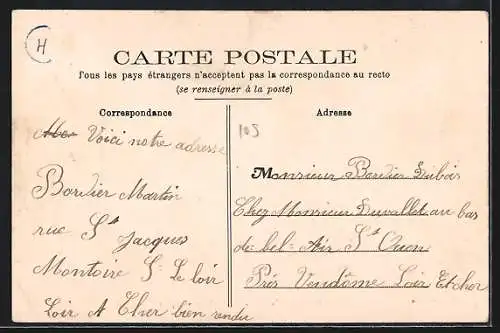 H
CARTE POSTALE
Tous les pays étrangers n'acceptent pas la correspondance au recto
(se renseigner à la poste)
Correspondance
Voici notre adresse
Bordier Martin
rue St
Jacques
Montoire S. Le loir
Loir et Cher bien rendu
Adresse
105
Monsieur Bordier Dubois
Chez Monsieur Duvallet au bas
de bel-Air St Ouen
Près Vendôme Loir Et cher